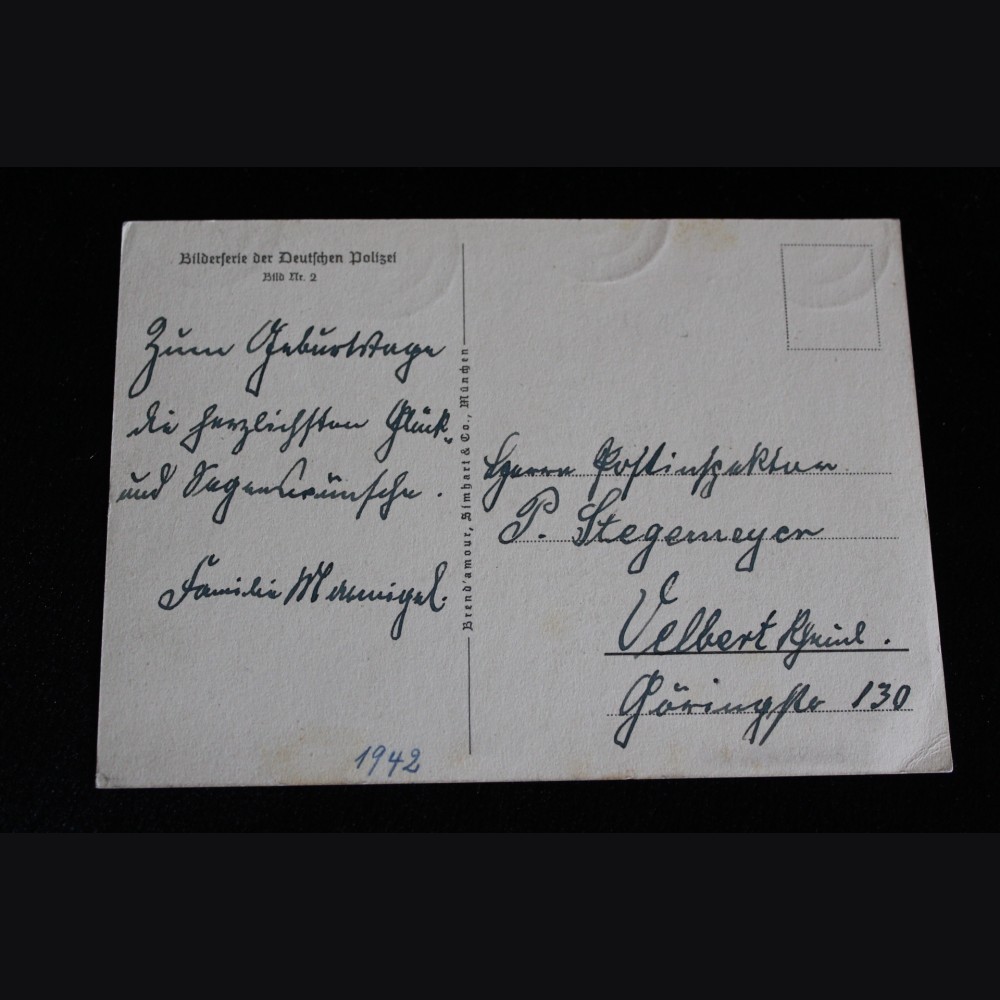 Bilderserie der Deutschen Polizei
Bild Nr. 2
Zum Geburtstage
die herzlichsten Glück-
und Segenswünsche.
Familie
1942
Brend'amour, Simhart & Co., München
Herrn Postinspektor
P. Stegemeyer
Velbert Rheinl.
Göringstr 130